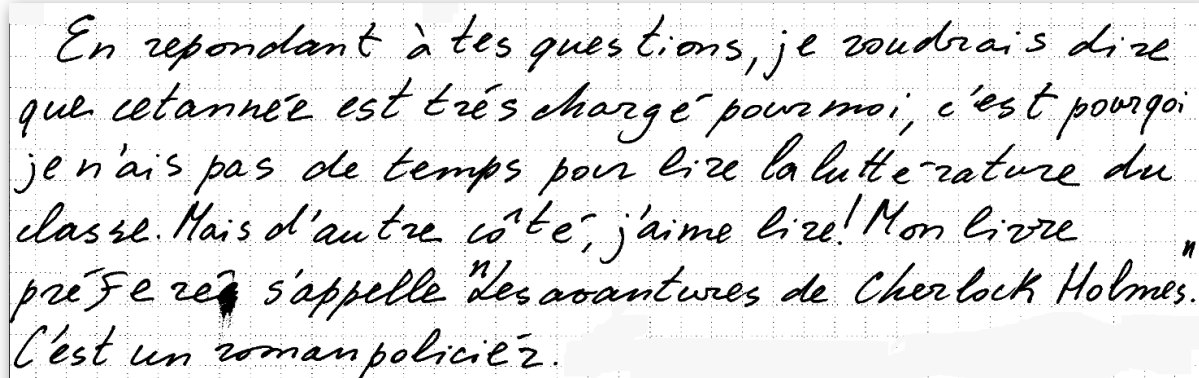 En repondant à tes questions, je voudrais dire
que cetannée est trés chargé pour moi, c'est pourqoi
je n'ais pas de temps pour lire la lutterature du
classe. Mais d'autre côté, j'aime lire! Mon livre
préferé s'appelle "Les avantures de Cherlock Holmes".
C'est un roman policiér.